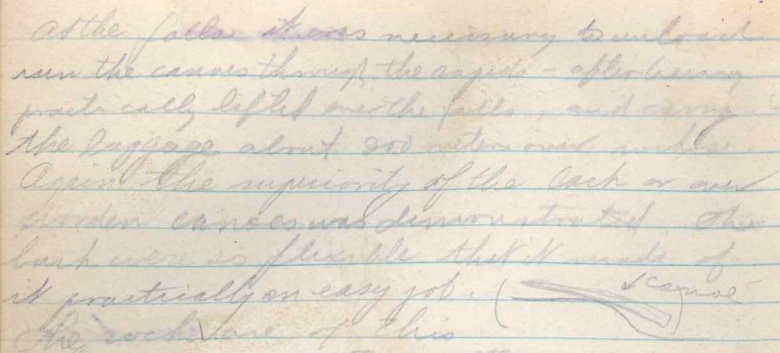 At the falls it was necessary to unload
run the canoes through the rapids - after being
practically lifted over the falls, and carry
the luggage about 200 meters over rocks.
Again the superiority of the bark over
wooden canoes was demonstrated. The
bark were so flexible that it made of
it practically an easy job. canoe
The rocks are of this